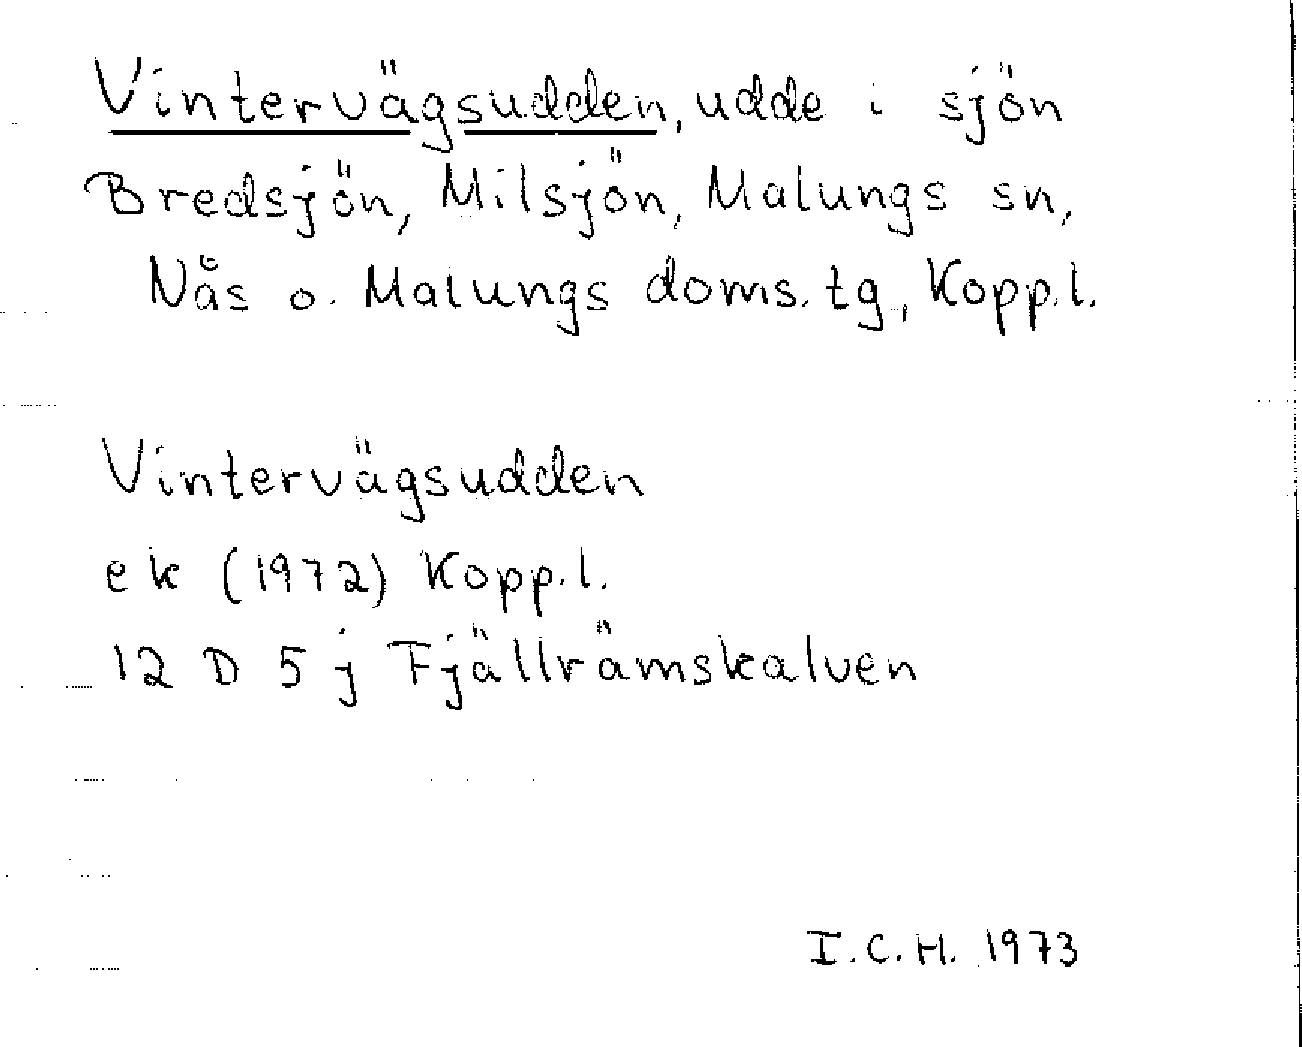 Vintervägsudden, udde i sjön
Bredsjön, Milsjön, Malungs sn,
Nås o. Malungs doms.tg, Kopp.l.
Vintervägsudden
ek (1972) Kopp.l.
12 D 5 j Fjällrämskalven
I.C.H. 1973